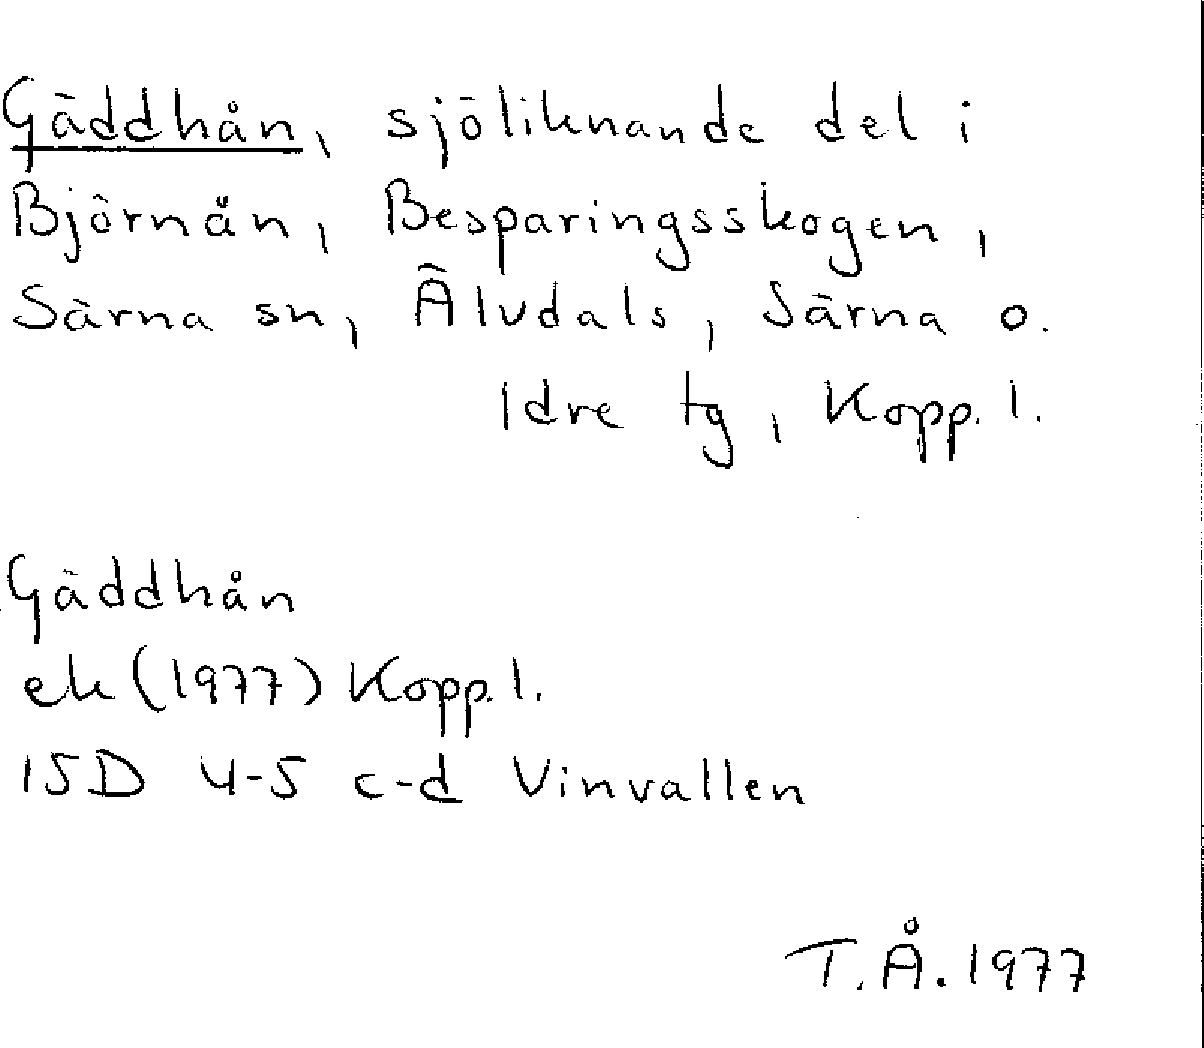 Gäddhån, sjöliknande del i
Björnån, Besparingsskogen,
Särna sn, Älvdals, Särna o.
Idre tg, Kopp. l.
Gäddhån
ek (1977) Kopp. l.
15D 4-5 c-d Vinvallen
T.Å. 1977